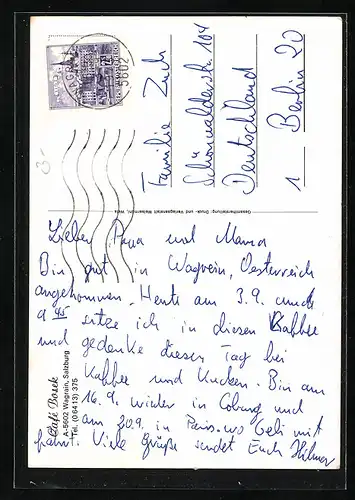 Familie Zuch
Schönwalderstr. 104
Deutschland
1 Berlin 20
5602
Gesamtherstellung: Druck- und Verlagsanstalt Welsermühl, Wels
Café Bosek
A-5602 Wagrain, Salzburg
Tel. (0 64 13) 375
Lieber Papa und Mama
Bin gut in Wagrein, Oesterreich
angekommen. Heute am 3.9. um
9 45 sitze ich in diesen Kaffee
und gedenke diesen Tag bei
Kaffee und Kuchen. Bin am
16.9. wieder in Coburg und
am 20.9. in Paris. wo Geli mit
fährt. Viele Grüße sendet Euch Hilmar